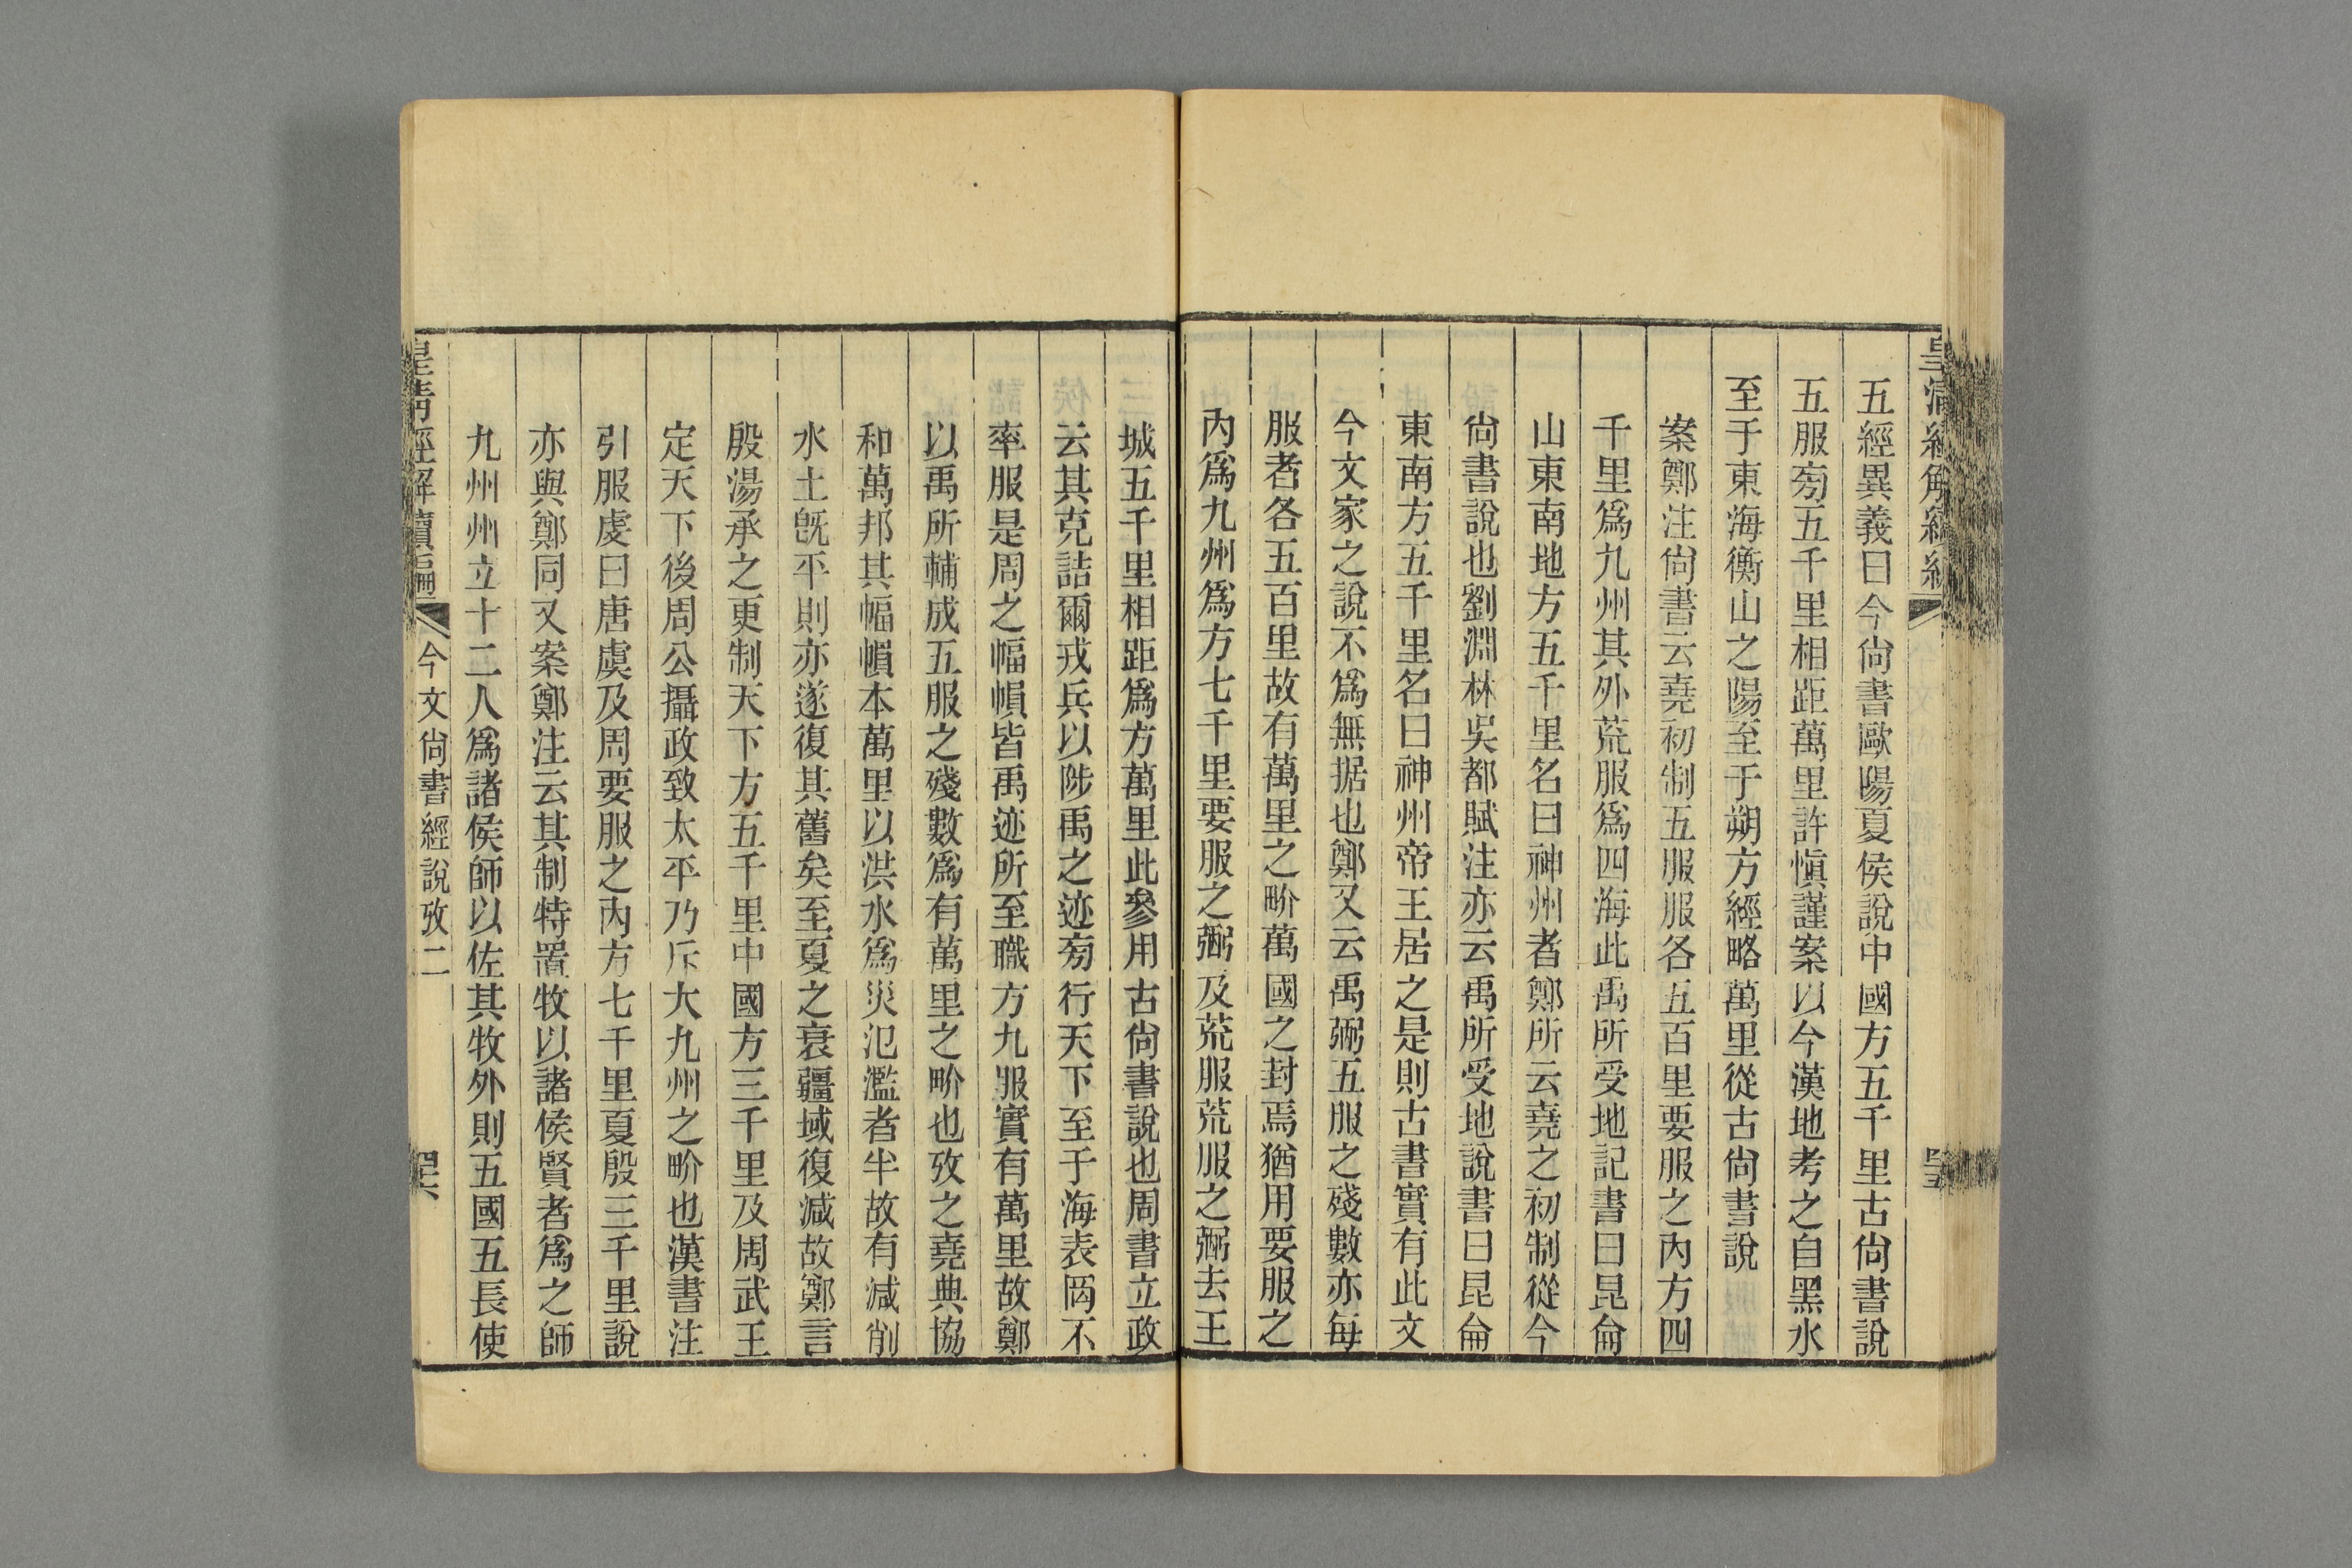 五經異義曰今尙書歐陽夏侯說中國方五千里古尙書說
五服旁五千里相距萬里許愼謹案以今漢地考之自黑水
至于東海衡山之陽至于朔方經略萬里從古尙書說
案鄭注尙書云堯初制五服服各五百里要服之內方四
千里爲九州其外荒服爲四海此禹所受地記書曰昆侖
山東南地方五千里名曰神州者鄭所云堯之初制從今
尙書說也劉淵林吳都賦注亦云禹所受地說書曰昆侖
東南方五千里名曰神州帝王居之是則古書實有此文
今文家之說不爲無据也鄭又云禹弼五服之殘數亦每
服者各五百里故有萬里之畍萬國之封焉猶用要服之
內爲九州爲方七千里要服之弼及荒服荒服之弼去王
城五千里相距爲方萬里此參用古尙書說也周書立政
云其克詰爾戎兵以陟禹之迹旁行天下至于海表罔不
率服是周之幅幀皆禹迹所至職方九服實有萬里故鄭
以禹所輔成五服之殘數爲有萬里之畍也攷之堯典協
和萬邦其幅幀本萬里以洪水爲災氾濫者半故有減削
水土旣平則亦遂復其舊矣至夏之衰疆域復減故鄭言
殷湯承之更制天下方五千里中國方三千里及周武王
定天下後周公攝政致太平乃斥大九州之畍也漢書注
引服虔曰唐虞及周要服之內方七千里夏殷三千里說
亦與鄭同又案鄭注云其制特置牧以諸侯賢者爲之師
九州州立十二人爲諸侯師以佐其牧外則五國五長使
皇清經解續編
今文尙書經說攷二